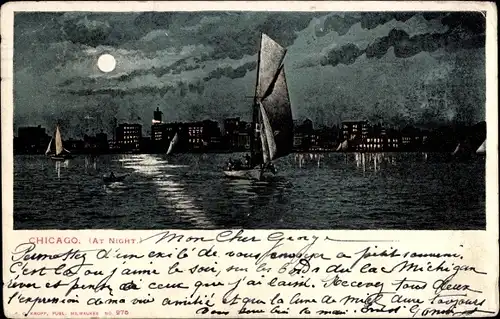 CHICAGO. (AT NIGHT.) Mon Cher George
Permettez d'un exilé de vous envoyer ce petit souvenir.
C'est là où j'aime le soir, sur les bords du lac Michigan
river et penser à ceux que j'ai laissé. Recevez tous deux
l'expression de ma vive amitié et que la lune de miel dure toujours
E. C. KROPP, PUBL. MILWAUKEE NO. 275 vous serre bien la main.